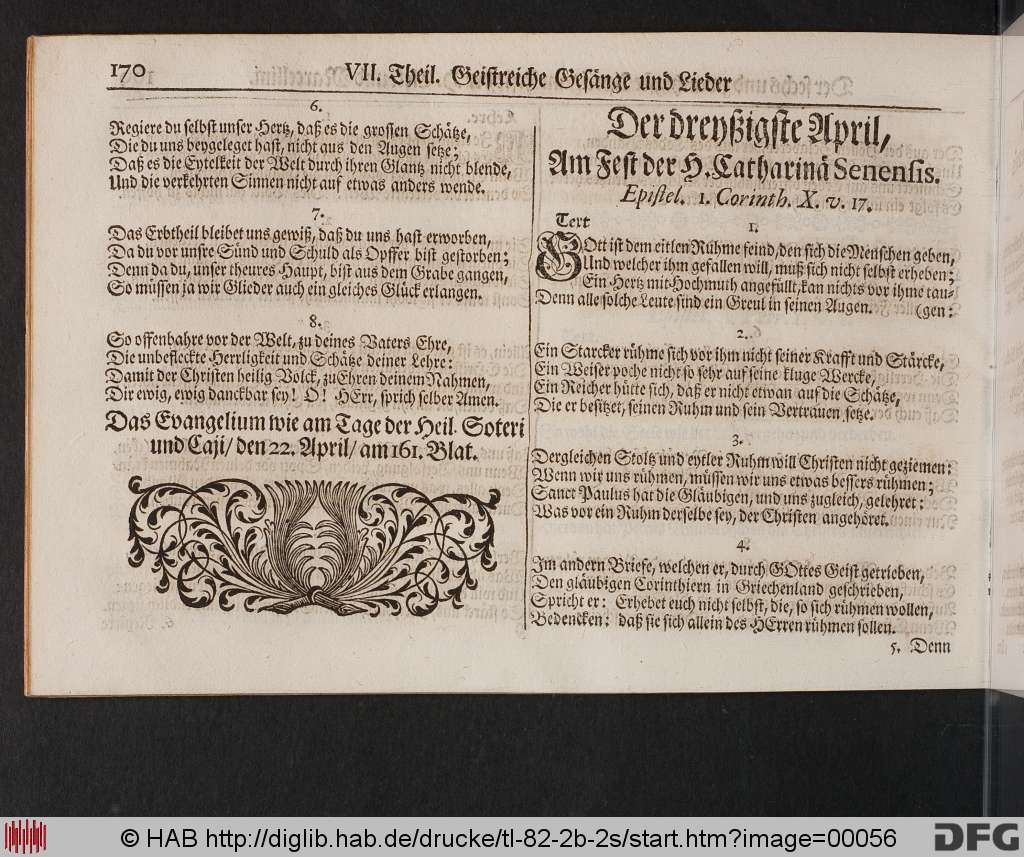 170
VII. Theil. Geistreiche Gesänge und Lieder
6.
Regiere du selbst unser Hertz, daß es die grossen Schätze,
Die du uns beygeleget hast, nicht aus den Augen setze;
Daß es die Eytelkeit der Welt durch ihren Glantz nicht blende,
Und die verkehrten Sinnen nicht auf etwas anders wende.
7.
Das Erbtheil bleibet uns gewiß, daß du uns hast erworben,
Da du vor unsre Sünd und Schuld als Opffer bist gestorben;
Denn da du, unser theures Haupt, bist aus dem Grabe gangen,
So müssen ja wir Glieder auch ein gleiches Glück erlangen.
8.
So offenbahre vor der Welt, zu deines Vaters Ehre,
Die unbefleckte Herrligkeit und Schätze deiner Lehre:
Damit der Christen heilig Volck, zu Ehren deinem Nahmen,
Dir ewig, ewig danckbar sey! O! HErr, sprich selber Amen.
Das Evangelium wie am Tage der Heil. Soteri
und Caji/ den 22. April/ am 161. Blat.
Der dreyßigste April,
Am Fest der H. Catharinä Senensis.
Epistel. 1. Corinth. X. v. 17.
Text
1.
GOtt ist dem eitlen Rühme feind, den sich die Menschen geben,
Und welcher ihm gefallen will, muß sich nicht selbst erheben;
Ein Hertz mit Hochmuth angefüllt, kan nichts vor ihme tau-
Denn alle solche Leute sind ein Greul in seinen Augen. (gen:
2.
Ein Starcker rühme sich vor ihm nicht seiner Krafft und Stärcke,
Ein Weiser poche nicht so sehr auf seine kluge Wercke,
Ein Reicher hütte sich, daß er nicht etwan auf die Schätze,
Die er besitzet, seinen Ruhm und sein Vertrauen setze.
3.
Dergleichen Stoltz und eytler Ruhm will Christen nicht geziemen:
Wenn wir uns rühmen, müssen wir uns etwas bessers rühmen;
Sanct Paulus hat die Gläubigen, und uns zugleich, gelehret:
Was vor ein Ruhm derselbe sey, der Christen angehöret.
4.
Im andern Briefe, welchen er, durch GOttes Geist getrieben,
Den gläubigen Corinthiern in Griechenland geschrieben,
Spricht er: Erhebet euch nicht selbst, die, so sich rühmen wollen,
Bedencken: daß sie sich allein des HErren rühmen sollen.
5. Denn
© HAB http://diglib.hab.de/drucke/tl-82-2b-2s/start.htm?image=00056
DFG